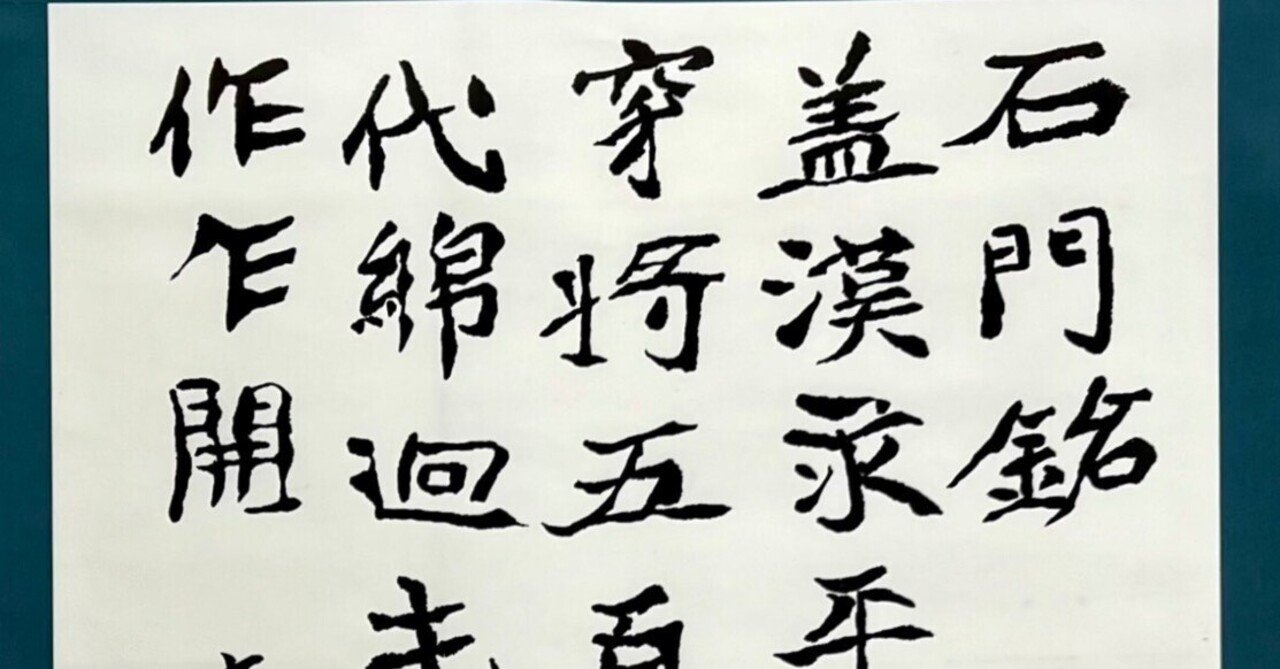 石門銘
盖漢永平
穿将五百
代綿迴
作乍開